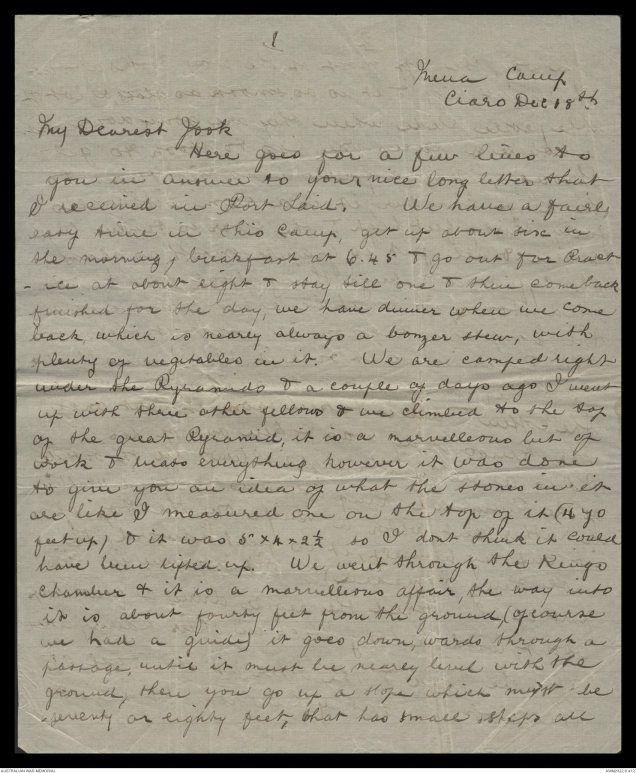 1
Mena Camp
Ciaro Dec 18th
My Dearest Jook
Here goes for a few lines to
you in answer to your nice long letter that
I received in Port Said. We have a fairly
easy time in this Camp, get up about six in
the morning, breakfast at 6.45 & go out for Pract
-ice at about eight & stay till one & then come back
finished for the day, we have dinner when we come
back which is nearly always a bonzer stew, with
plenty of vegitables in it. We are camped right
under the Pyramids & a couple of days ago I went
up with three other fellows & we climbed to the top
of the great Pyramid, it is a marvelleous bit of
work & beats everything however it was done
to give you an idea of what the stones in it
are like I measured one on the top of it (470
feet up) & it was 5 x 4 x 2½ so I dont think it could
have been lifted up. We went through the Kings
Chamber & it is a marvelleous affair, the way into
it is about fourty feet from the ground, (ofcourse
we had a guide) it goes down, wards through a
passage, until it must be nearly level with the
ground, then you go up a slope which must be
seventy or eighty feet, that has small steps all
AUSTRALIAN WAR MEMORIAL